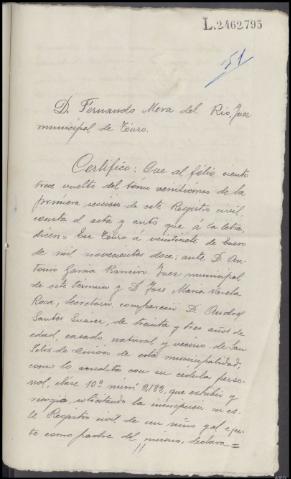 L.2462,795
51
D. Fernando Mera del Rio, Juez
municipal de Touro.
Certifico: Que al fólio ciento
trece vuelto del tomo veintiuno de la
primera sección de este Registro civil,
consta el acta y auto que à la letra
dicen = En Touro á veintisiete de Enero
de mil novecientos doce; ante D. An-
tonio Garcia Juez municipal
de este término y D. José Maria Varela
Rosa, Secretario, compareció D.
Santos Suarez, de treinta y tres años de
edad, casado, natural y vecino de San
de esta municipalidad,
como lo acredita con su cédula perso-
nal, clase 10ª núm. 2182, que exhibe y
recoge, solicitando la inscripción en es-
te Registro civil de un niño y al efec-
to como padre del mismo, declara =